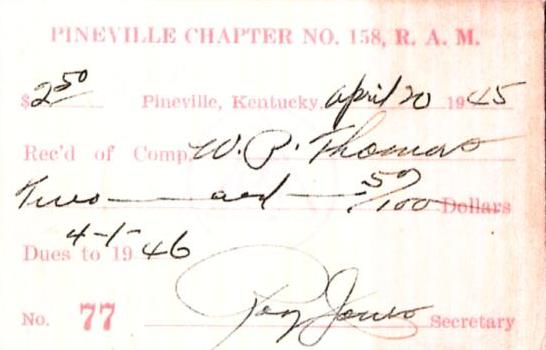 PINEVILLE CHAPTER NO. 158, R. A. M.
$2 50 Pineville, Kentucky, April 20 1945
Rec'd of Comp. W. P. Thomas
Two — and — 50/100 Dollars
4-1-
Dues to 19 46
No. 77 Roy Jones Secretary